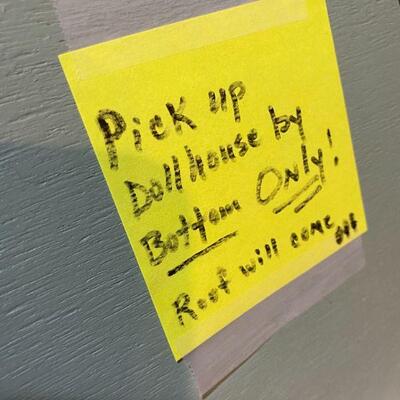 Pick up
Dollhouse by
Bottom Only!
Roof will come off